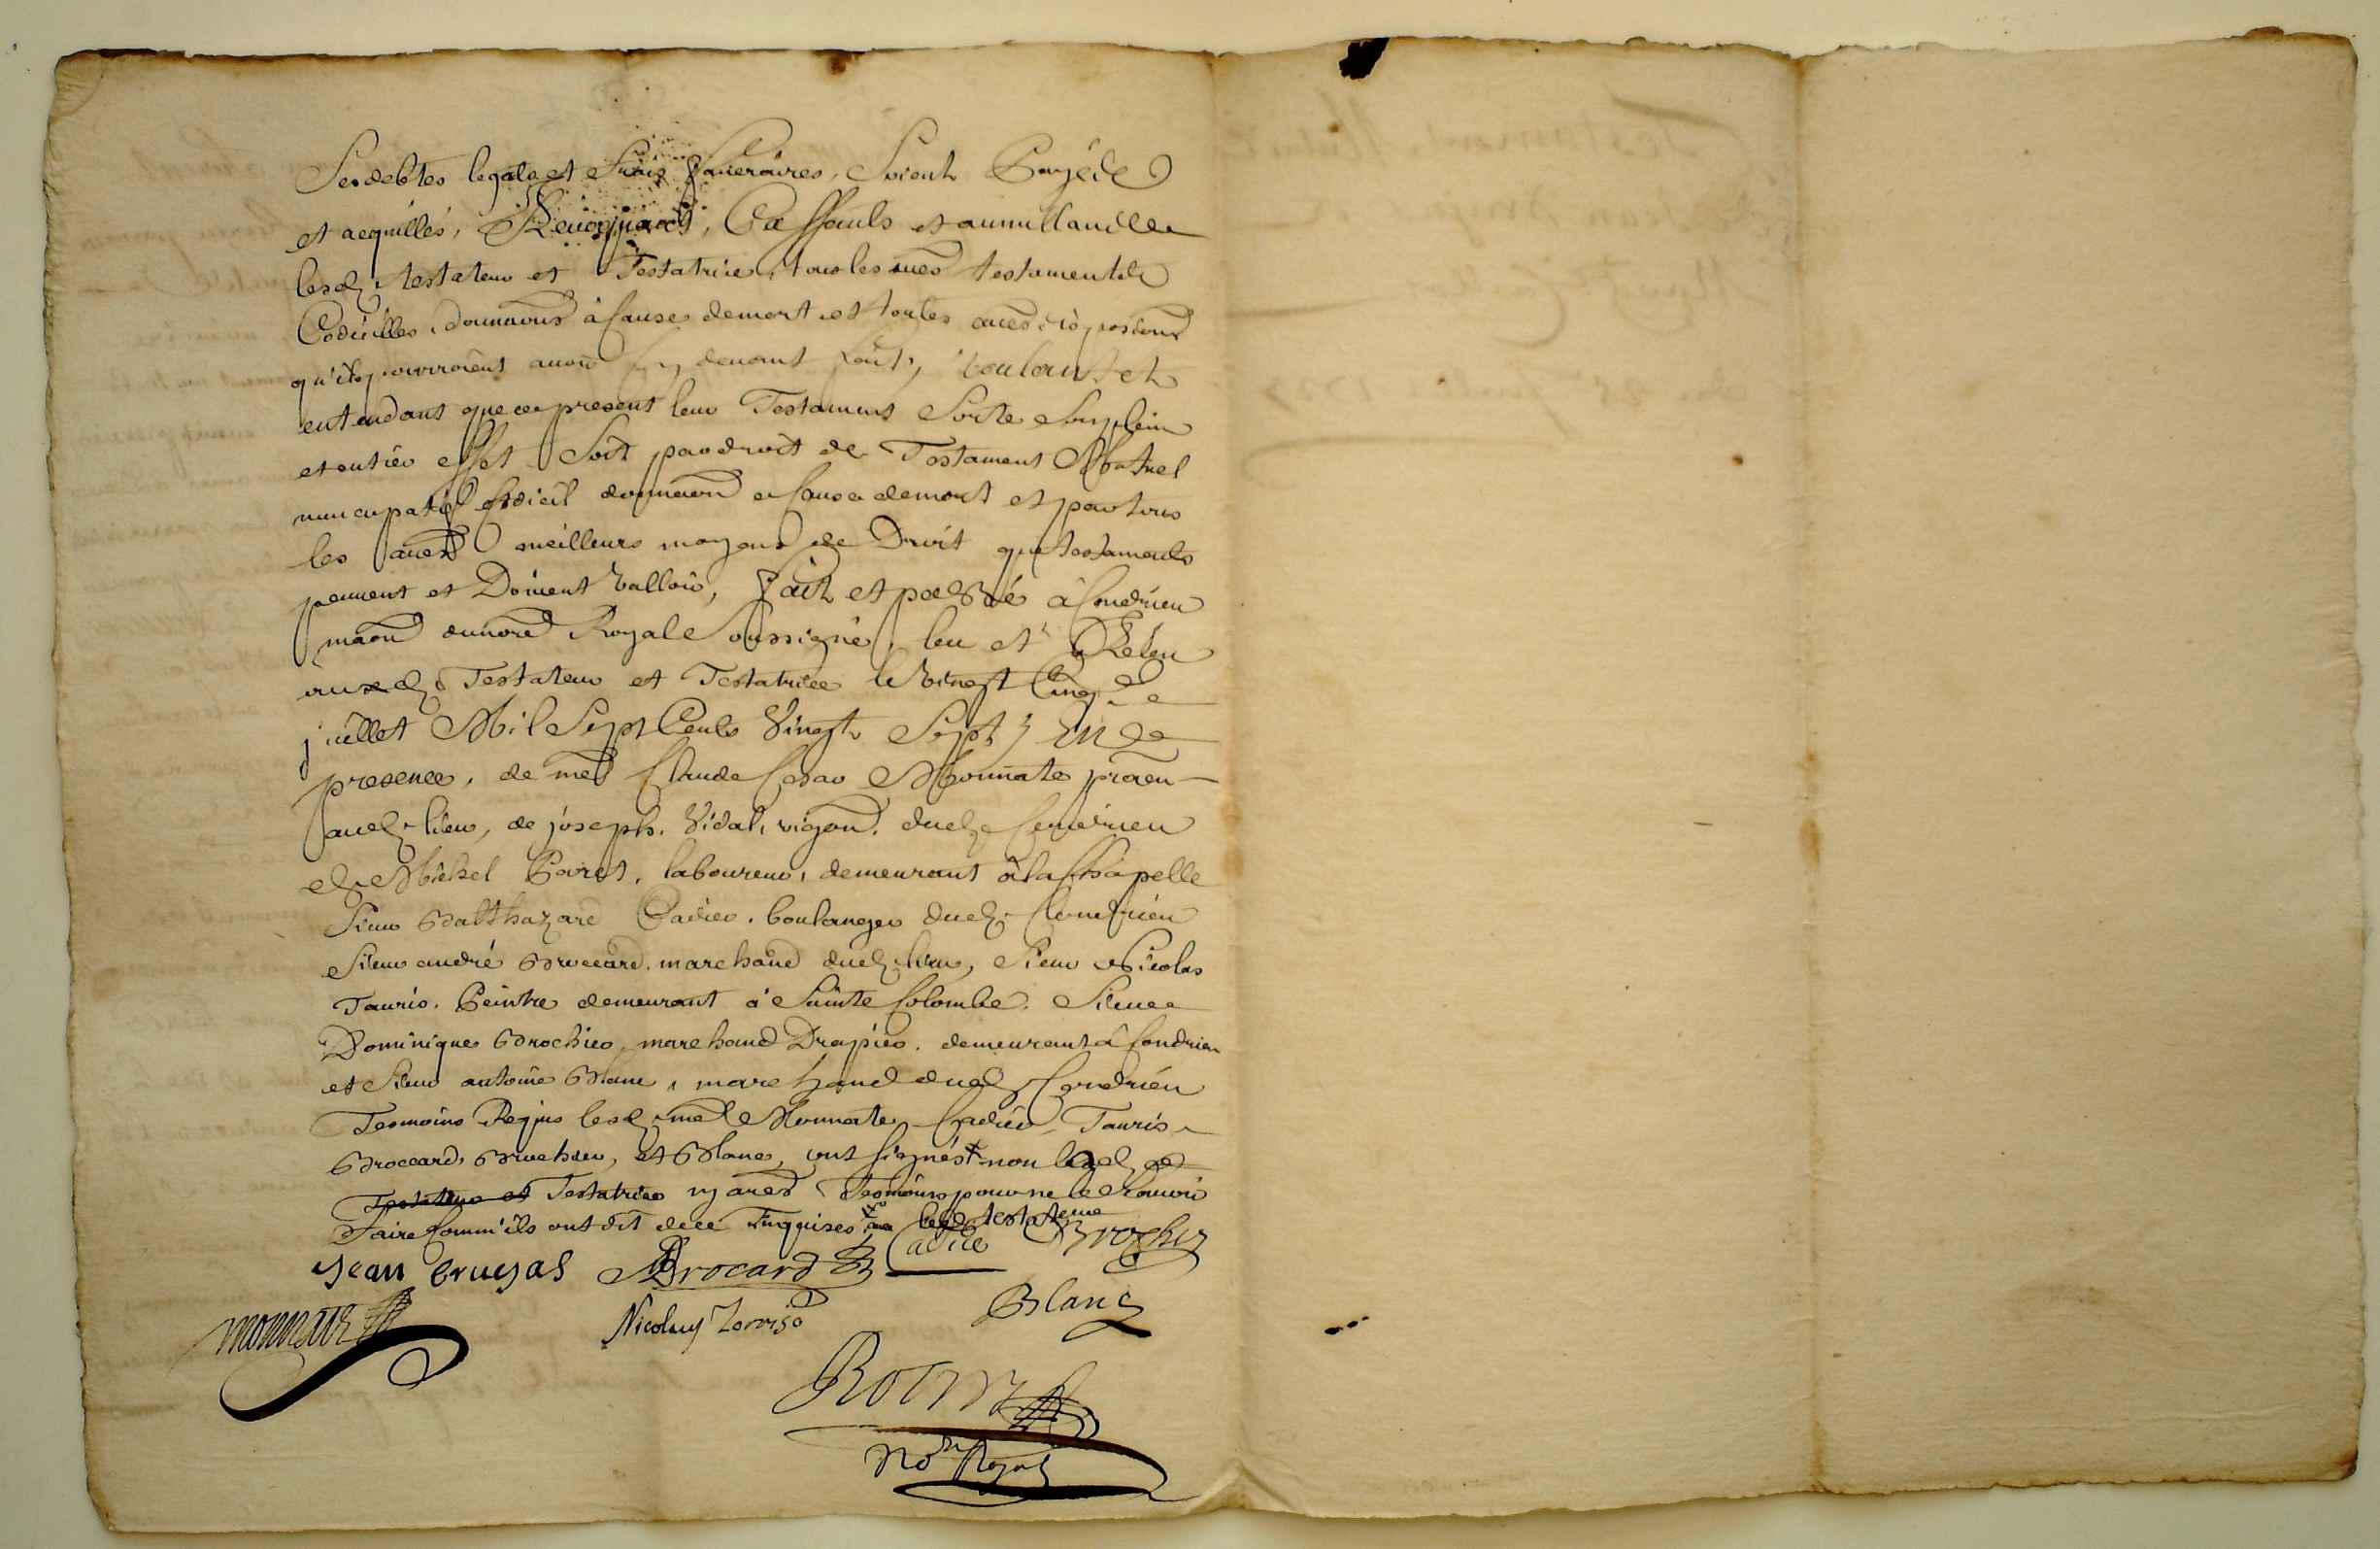 Ses debtes legats et frais funeraires, Soient Payés
et acquittés, Revoquants, Cassants et annullants
lesd. testateur et Testatrice, tous les aues testaments
Codicilles, donnaons à Cause de mort et toutes aues disposions
qu'ils pourroient auoir Cy deuant fait, voulant et
entendant que ce present leur Testament Sorte Son plein
et entier effet Soit par droit de Testament Mutuel
nuncupatif Codicil donnaon a Cause de mort et par tous
les aues meilleurs moyens de Droit que testaments
peuuent et Doiuent valloir, fait et passé à Condrieu
maon du nore Royal Soussigné, leu et Releu
auxd. Testateur et Testatrice le vingt Cinq
juillet Mil Sept Cents Vingt Sept, En
presence, de me Claude Cesar Monnate
aud. lieu, de joseph. Vidal, vigon. dud. Condrieu
Michel Paret, laboureur, demeurant à la Chapelle
Sieur Balthazard Cadier, boulanger dud. Condrieu
Sieur andré Broccard, marchand dud. lieu, Sieur Nicolas
Tauris, Peintre demeurant à Sainte Colombe, Sieur
Dominique Brochier, marchand Drapier, demeurant à Condrieu
et Sieur antoine Blanc, marchand dud. Condrieu
Tesmoins Requis lesd. me Monnate Cadier Tauris
Broccard Brochier, et Blanc, ont signés non lad.
Testateur et Testatrice ny aues Tesmoins pour ne le Sauoir
Faire Comm'ils ont dit de ce Enquises led. testateur
Jean Bruyas Brocard Cadier Brochier
monnate Nicolas Blanc
Note Royal
Testament
Jean Bruyas
du 25 juillet 1727